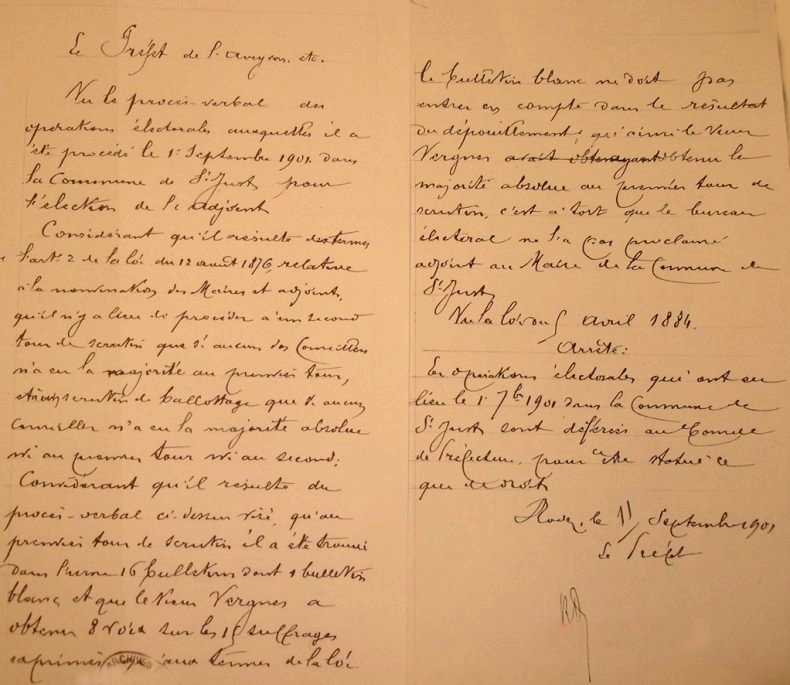 Le Préfet de l'Aveyron. etc.
Vu le procès-verbal des
opérations électorales auxquelles il a
été procédé le 1er Septembre 1901 dans
la Commune de St Just pour
l'élection de l' adjoint
Considérant qu'il résulte des termes
l'art. 2 de la loi du 12 août 1876, relative
à la nomination des Maires et adjoints,
qu'il n'y a lieu de procéder à un second
tour de scrutin que si aucun des Conseillers
n'a eu la majorité au premier tour,
scrutin de ballottage que si aucun
conseiller n'a eu la majorité absolue
ni au premier tour ni au second;
Considérant qu'il résulte du
procès-verbal ci-dessus visé, qu'au
premier tour de scrutin il a été trouvé
dans l'urne 16 bulletins dont 1 bulletin
blanc et que le sieur Vergnes a
obtenu 8 voix sur les 15 suffrages
exprimés aux termes de la loi.
ARCHIVES
le bulletin blanc ne doit pas
entrer en compte dans le résultat
du dépouillement; qu'ainsi le sieur
Vergnes avait obtenu la
majorité absolue au premier tour de
scrutin, c'est à tort que le bureau
électoral ne l'a pas proclamé
adjoint au Maire de la Commune de
St Just
Vu la loi du 5 avril 1884.
Arrête:
Les opérations électorales qui ont eu
lieu le 1er 7bre 1901 dans la Commune de
St Just sont déférées au Conseil
de Préfecture, pour être statué ce
que de droit
Rodez, le 11 Septembre 1901
Le Préfet